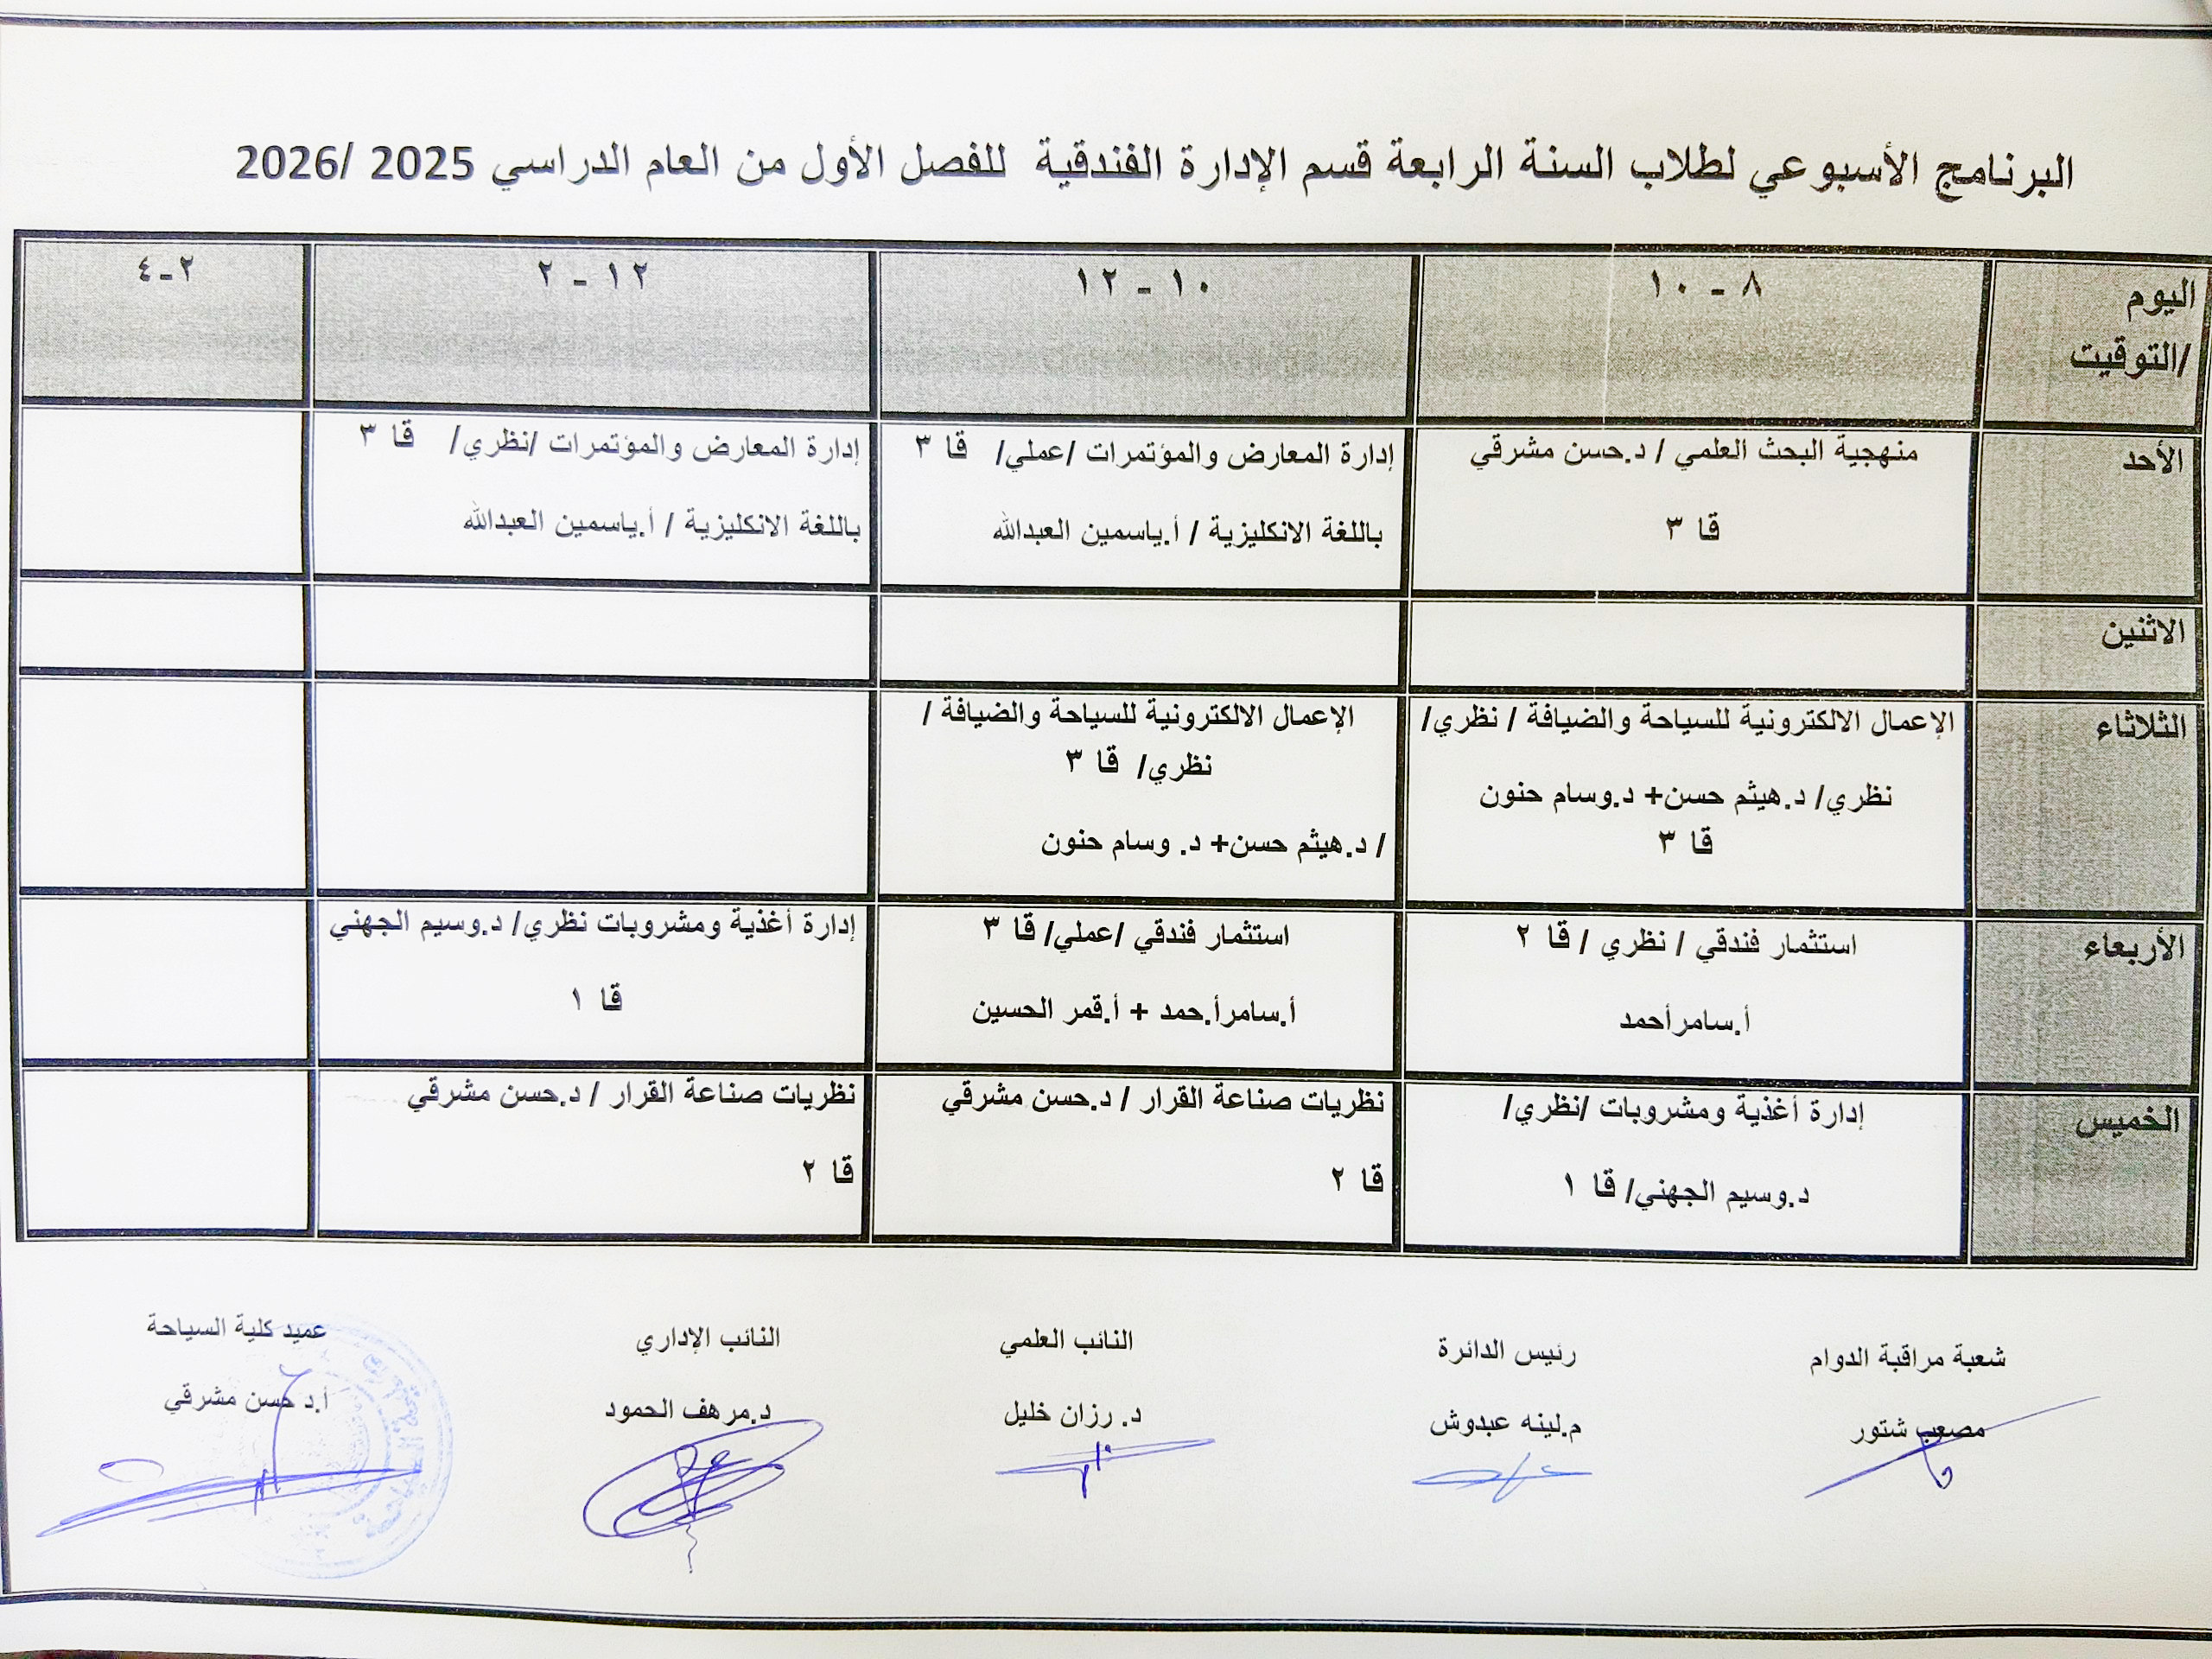 البرنامج الأسبوعي لطلاب السنة الرابعة قسم الإدارة الفندقية للفصل الأول من العام الدراسي 2025 /2026
اليوم /التوقيت
٨ - ١٠
١٠ - ١٢
١٢ - ٢
٢-٤
الأحد
منهجية البحث العلمي / د.حسن مشرقي
قا ٣
إدارة المعارض والمؤتمرات /عملي/ قا ٣
باللغة الانكليزية / أ.ياسمين العبدالله
إدارة المعارض والمؤتمرات /نظري/ قا ٣
باللغة الانكليزية / أ.ياسمين العبدالله
الاثنين
الثلاثاء
الإعمال الالكترونية للسياحة والضيافة / نظري/
نظري/ د.هيثم حسن+ د.وسام حنون
قا ٣
الإعمال الالكترونية للسياحة والضيافة /
نظري/ قا ٣
/ د.هيثم حسن+ د. وسام حنون
الأربعاء
استثمار فندقي / نظري / قا ٢
أ.سامرأحمد
استثمار فندقي /عملي/ قا ٣
أ.سامرأ.حمد + أ.قمر الحسين
إدارة أغذية ومشروبات نظري/ د.وسيم الجهني
قا ١
الخميس
إدارة أغذية ومشروبات /نظري/
د.وسيم الجهني/ قا ١
نظريات صناعة القرار / د.حسن مشرقي
قا ٢
نظريات صناعة القرار / د.حسن مشرقي
قا ٢
شعبة مراقبة الدوام
مصعب شتور
رئيس الدائرة
م.لينه عبدوش
النائب العلمي
د. رزان خليل
النائب الإداري
د.مرهف الحمود
عميد كلية السياحة
أ.د حسن مشرقي